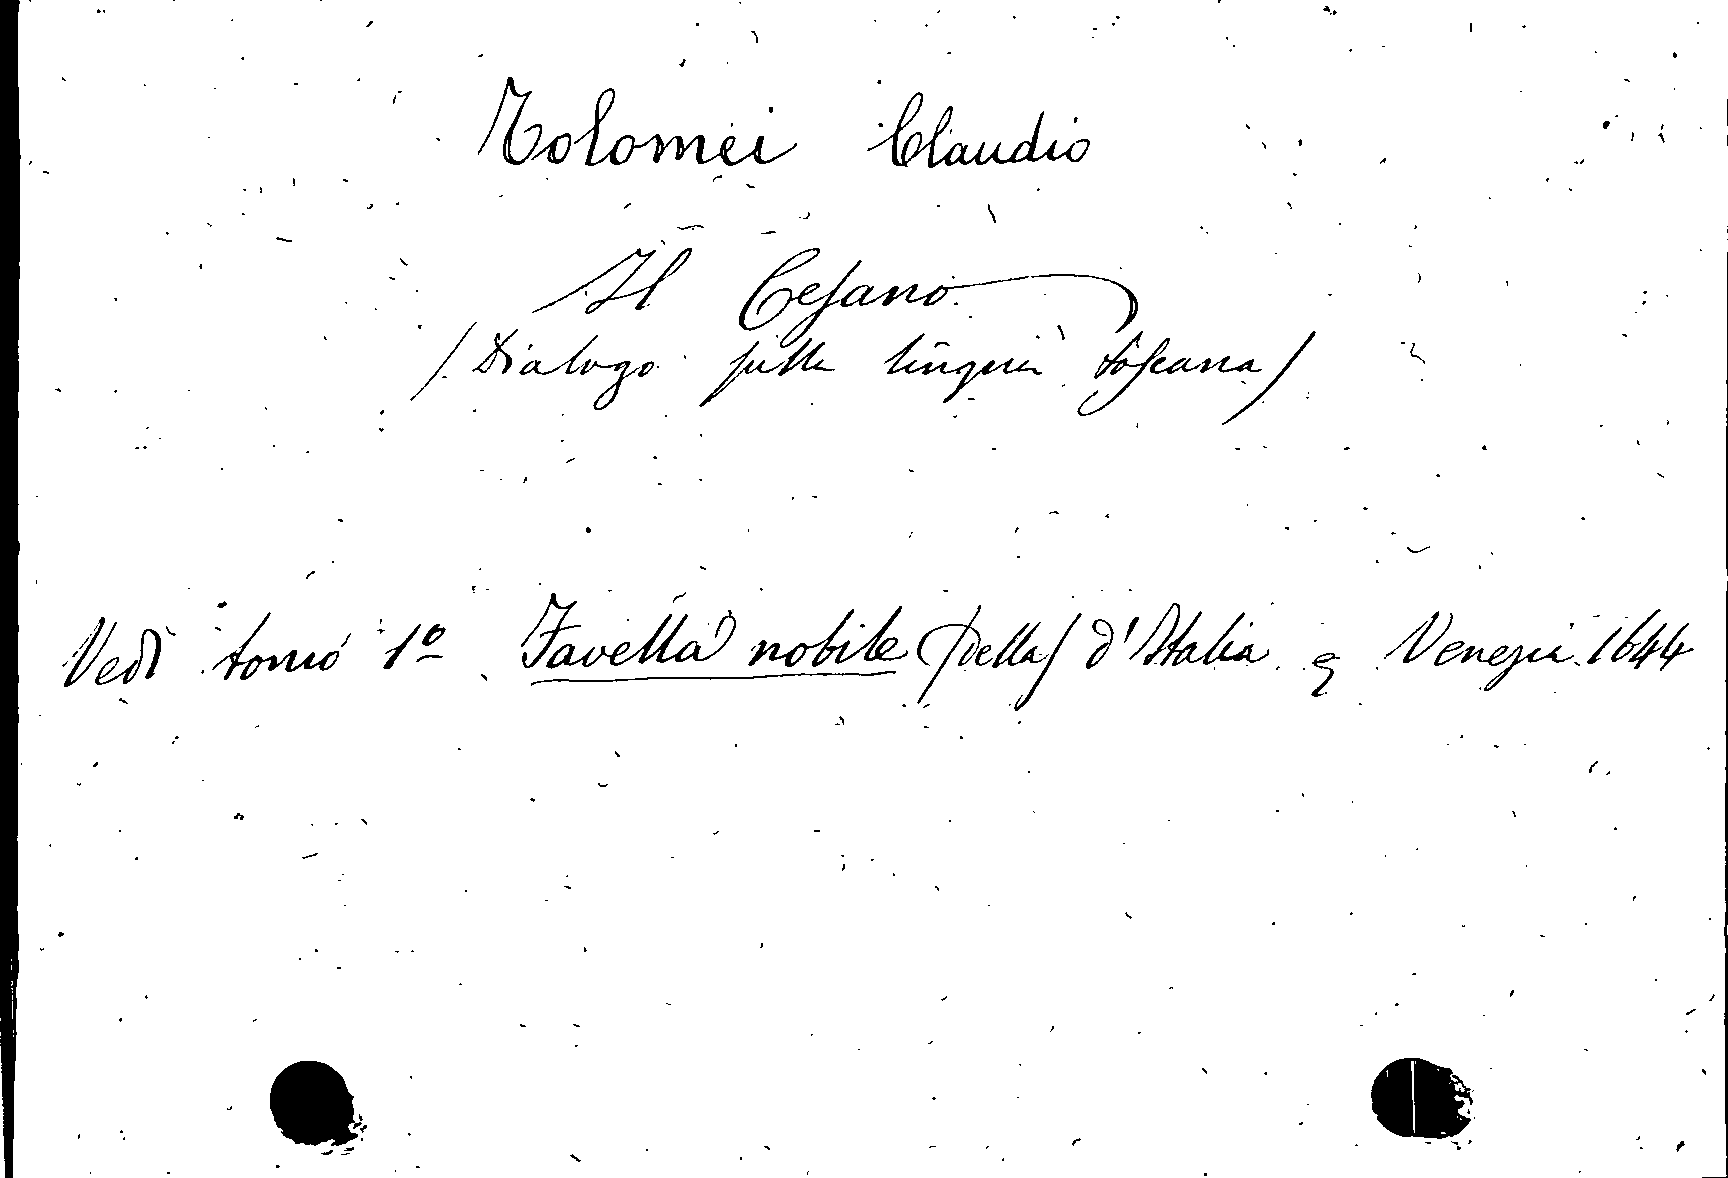 Tolomei Claudio
Il Cesano
(Dialogo sulla lingua toscana)
Vedi tomo 1º Favella nobile (della) d'Italia Venezia 1644